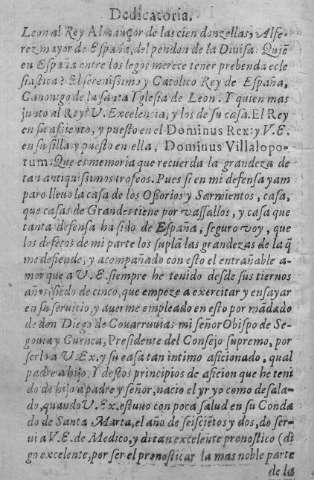 Dedicatoria.
Leon al Rey Almançor de las cien donzellas, Alfe-
rez mayor de España, del pendon de la Diuisa: Quiẽ
en España entre los legos merece tener prebenda ecle
siastica? El serenissimo y Catolico Rey de España,
Canonigo de la santa Yglesia de Leon. Y quien mas
junto al Rey? V. Excelencia, y los de su casa. El Rey
en su assiento, y puesto en el Dominus Rex: y V. E.
en su silla y puesto en ella, Dominus Villalopo-
tum: Que es memoria que recuerda la grandeza de
tan antiquissimos trofeos. Pues si en mi defensa y am
paro lleuo la casa de los Ossorios y Sarmientos, casa,
que casas de Grandes tiene por vassallos, y casa que
tanta defensa ha sido de España, seguro voy, que
los defetos de mi parte los suplã las grandezas de la q̃
me defiende, y acompañado con esto el entrañable a-
mor que a V. E. siempre he tenido desde sus tiernos
años, siẽdo de cinco, que empeze a exercitar y ensayar
en su seruicio, y auerme empleado en esto por mãdado
de don Diego de Couarruuias mi señor Obispo de Se-
gouia y Cuenca, Presidente del Consejo supremo, por
ser lo a V. Ex. y su casa tan intimo aficionado, qual
padre a hijo. Y destos principios de aficion que he teni
do de hijo a padre y señor, nacio el yr yo como desala-
do, quando V. Ex. estuuo con poca salud en su Conda
do de Santa Marta, el año de seiscientos y dos, do ser-
ui a V. E. de Medico, y di tan excelente pronostico (di
go excelente, por ser el pronosticar la mas noble parte
de la